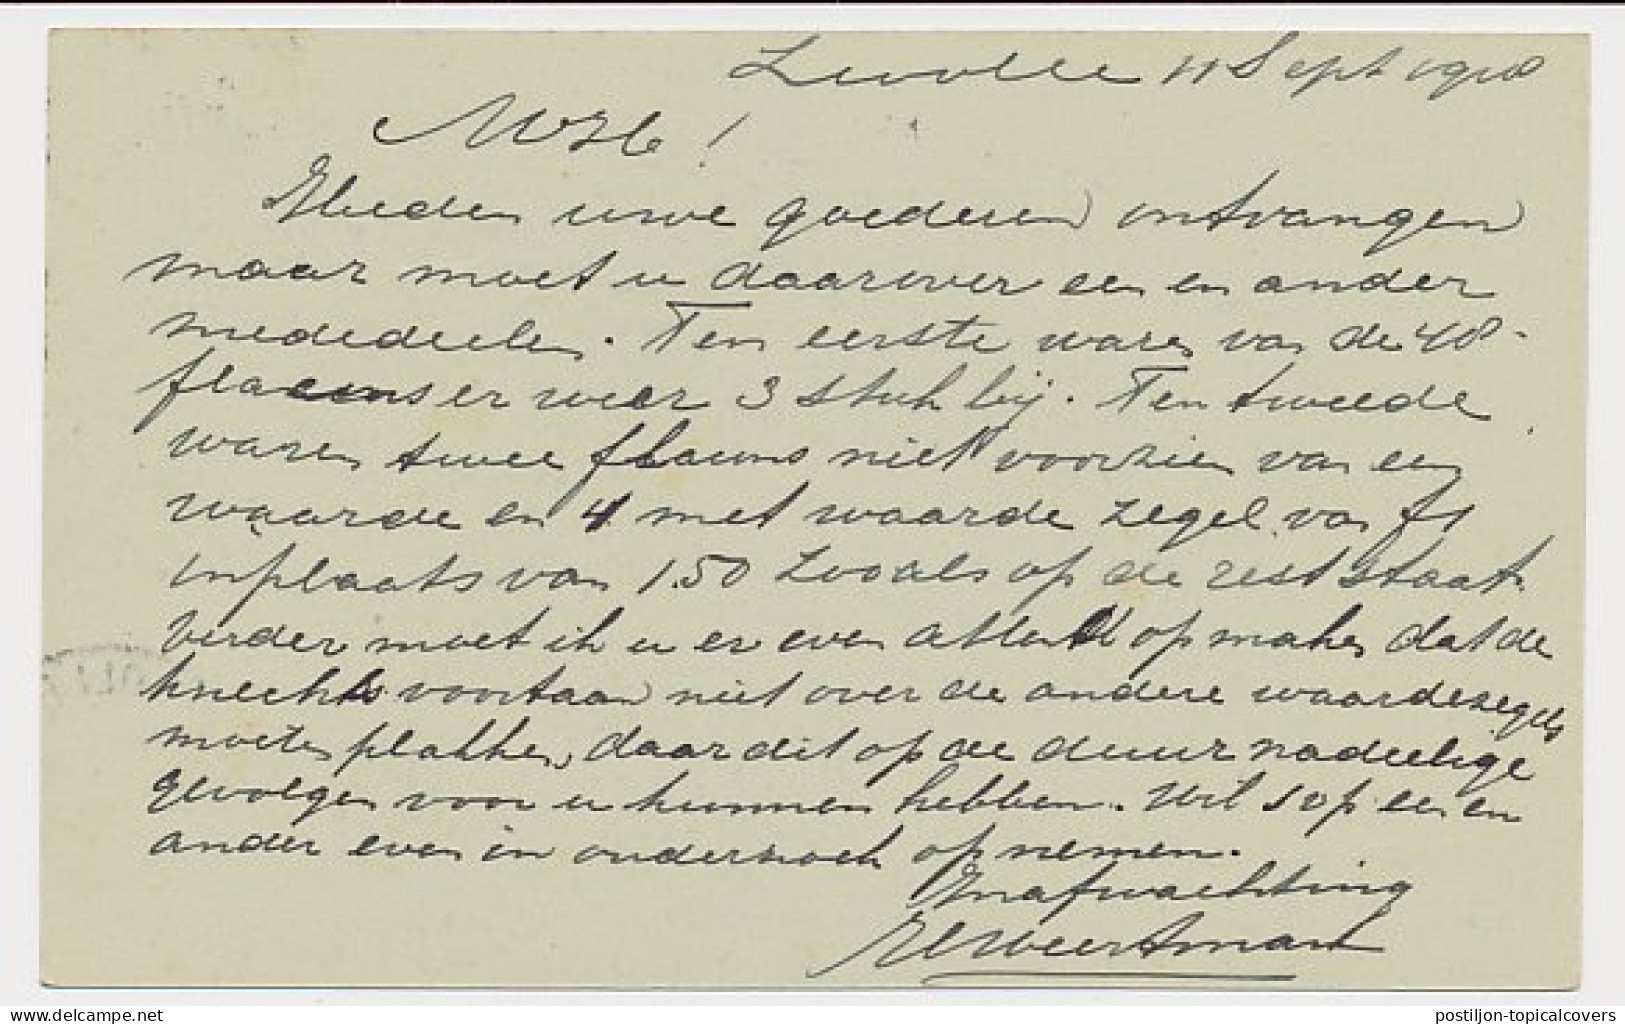 Zwolle 11 Sept 1918
MrH !
Heden uwe goederen ontvangen
maar moet u daarover een en ander
mededeelen. Ten eerste waren van de 40
flacons er weer 3 stuk bij. Ten tweede
waren twee flacons niet voorzien van een
waarde en 4 met waarde zegel van f1
inplaats van 1.50 zooals op de rest staat.
Verder moet ik u er even attent op maken dat de
knechts voortaan niet over de andere waardezegels
moeten plakken, daar dit op de duur nadeelige
gevolgen voor u kunnen hebben. Wil u op een en
ander even in onderzoek op nemen.
Inafwachting
Weertman
www.delcampe.net
postiljon-topicalcovers